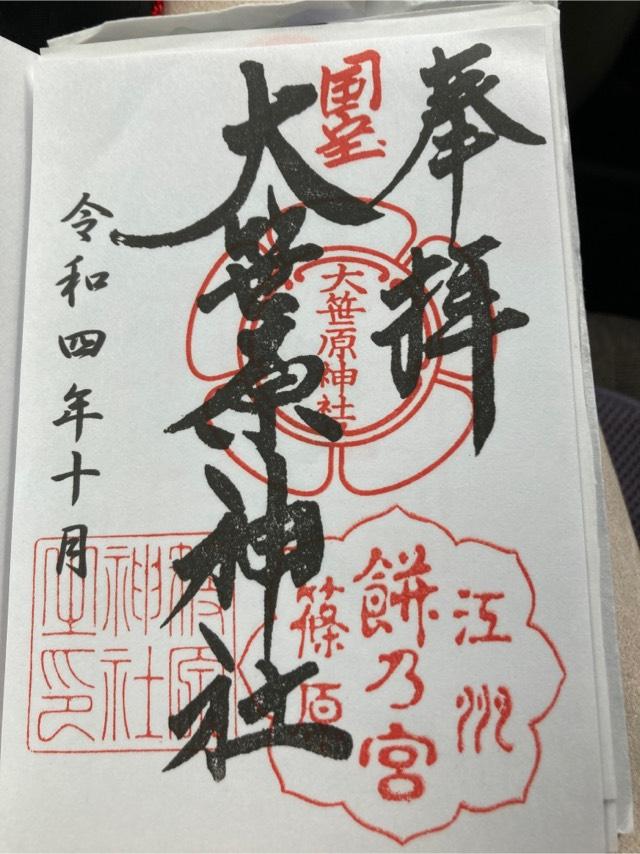 奉拝
国宝
大笹原神社
大笹原神社
江州
餅乃宮
篠原
神社
令和四年十月